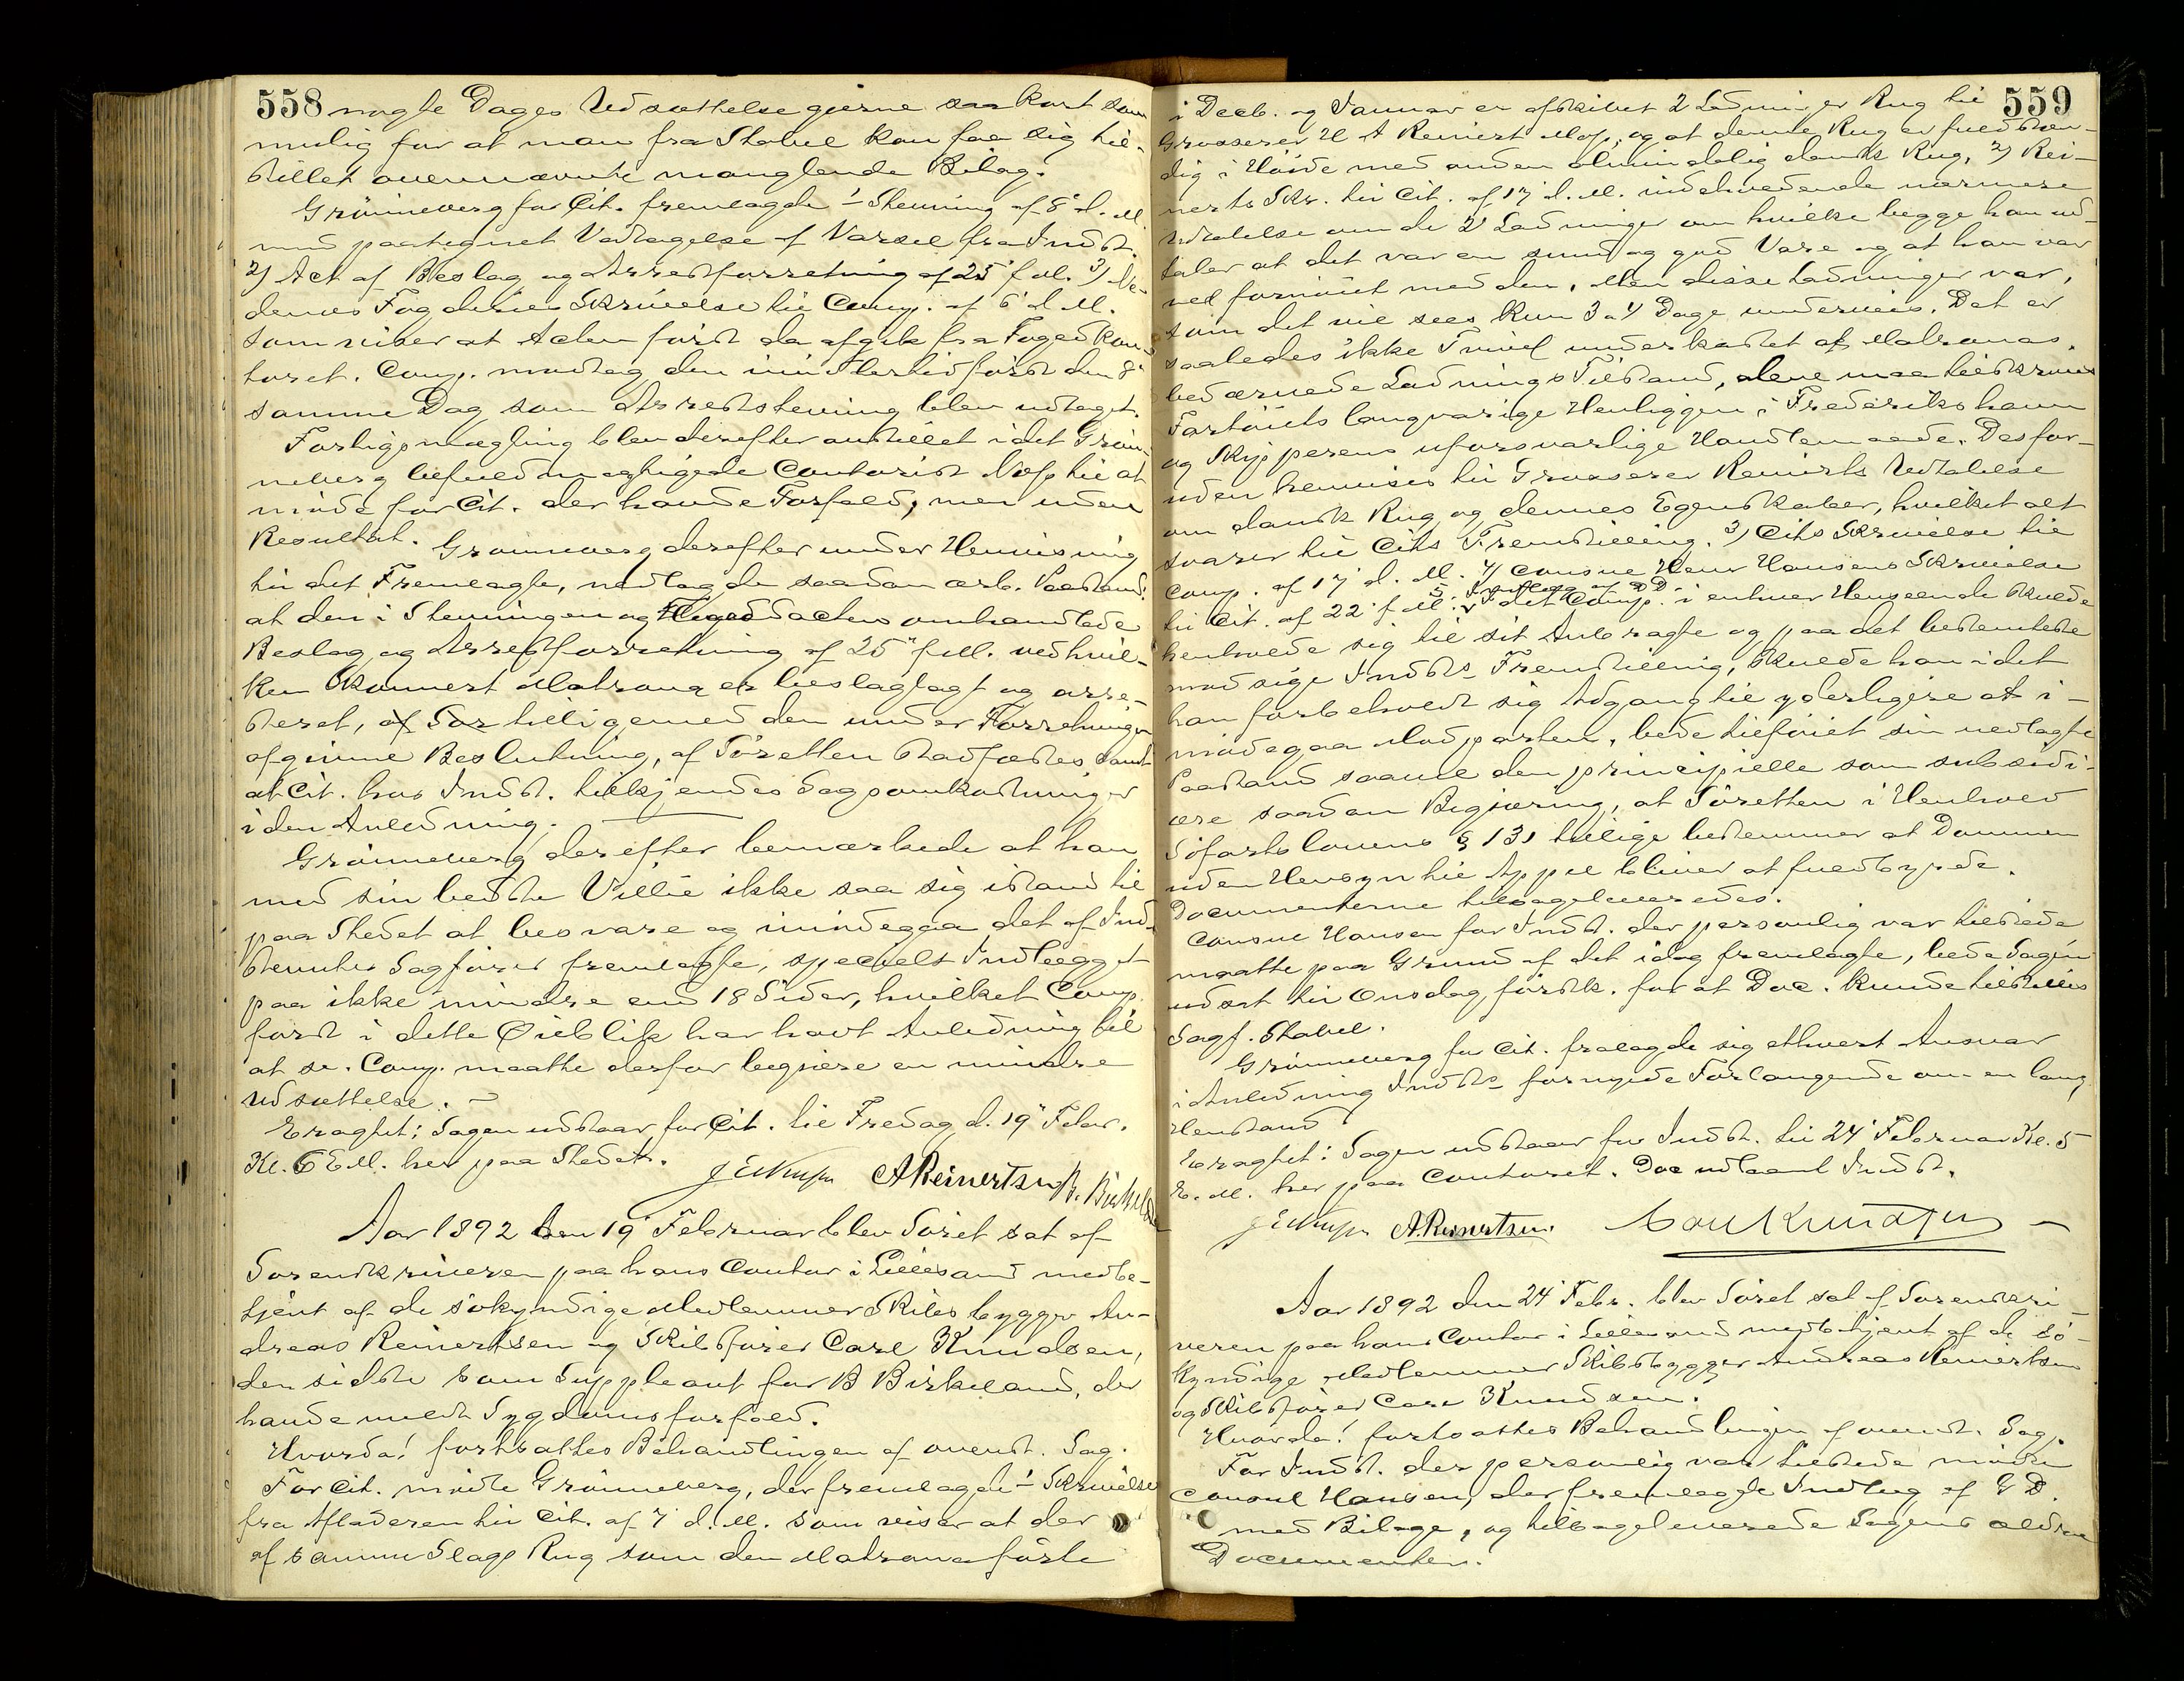 558
nogle Dages Udsættelse gjerne saa kort som
mulig for at man fra Stabel kan faa sig til-
stillet ovennævnte manglende Bilag.
Grönneberg for Cit. fremlagde 1 Stevning af 8' d. M.
med paategnet Vedtagelse af Varsel fra Indst.
2) Act af Beslag og Arrestforretning af 25' f. M. 3)
dennes Fogderies Skrivelse til Comp. af 6' d. M.
som viser at Acten först da afgik fra Fogedkon-
toret. Comp. modtog den imidlertid först den 8'
samme Dag som Arreststevning blev udtaget.
Forligsmægling blev derefter anstillet idet Grön-
neberg befuldmægtigede Contorist Næss til at
möde for Cit. der havde Forfald, men uden
Resultat. Grönneberg derefter under Henvisning
til det Fremlagte, nedlagde saadan ærb. Paastand:
at den i Stevningen og Fogedacten omhandlede
Beslag og Arrestforretning af 25' f. M. ved hvil-
ken Skonnert Matrona er beslaglagt og arre-
steret, tilligemed den under Forretningen
afgivne Beslutning, af Söretten stadfæstes samt
at Cit. hos Indst. tilkjendes Sagsomkostninger
i den Anledning.
Grönneberg derefter bemærkede at han
med sin bedste Villie ikke saa sig istand til
paa Stedet at besvare og imödegaa det af Ind-
stevntes Sagförer fremlagte, specielt Indlægget
paa ikke mindre end 18 Sider, hvilket Comp.
först i dette Öieblik har havt Anledning til
at se. Comp. maatte derfor begjære en mindre
Udsættelse.
Eragtet: Sagen udstaar for Cit. til Fredag d. 19' Febr.
Kl. 6 E.M. her paa Stedet.
A Reinertsen B. Birkeland
Aar 1892 den 19' Februar blev Söret sat af
Sorenskriveren paa hans Contor i Lillesand medbe-
tjent af de sökyndige Medlemmer Skibsbygger An-
dreas Reinertsen og Skibsförer Carl Knudsen,
den sidste som Suppleant for B Birkeland, der
havde meldt Sygdomsforfald.
Hvorda! fortsattes Behandlingen af ovenst. Sag.
For Cit. mödte Grönneberg, der fremlagde 1 Skrivelse
fra Afladeren til Cit. af 7 d. M. som viser at der
af samme Slags Rug som den Matrona förte
559
i Decb. og Januar er afskibet 2 Ladninger Rug til
Grosserer H A Reinert Moss, og at denne Rug er fuldstæn-
dig i Höide med anden almindelig dansk Rug, 2) Rei-
nerts Skr. til Cit. af 17 d. M. indeholdende nærmere
Udtalelse om de 2 Ladninger om hvilke begge han ud-
taler at det var en sund og god Vare og at han var
vel fornöiet med den. Men disse Ladninger var,
som det vil sees, kun 3 a 4 Dage underveis. Det er
saaledes ikke Tvivl underkastet at Matronas
bedærvede Ladnings Tilstand, alene maa tilskrives
Fartöiets langvarige Henliggen i Frederikshavn
og Skipperens uforsvarlige Handlemaade. Desfor-
uden henvises til Grosserer Reinerts Udtalelse
om dansk Rug og dennes Egenskaber, hvilket alt
svarer til Cits Fremstilling. 3) Cits Skrivelse til
Comp. af 17 d. M. 4) Consul Henr Hansens Skrivelse
til Cit. af 22' f. M. 5 Indlæg af DD. Idet Comp. i enhver Henseende skulde
henholde sig til sit Anbragte og paa det bestemteste
modsige Indsts Fremstilling, skulde han idet
han forbeholdt sig Adgang til yderligere at i-
mödegaa Modparten, bede tilföiet sin nedlagte
Paastand saavel den principielle som subsidi-
ære saadan Begjæring, at Söretten i Henhold
Söfartslovens § 131 tillige bestemmer at Dommen
uden Hensyn til Appel bliver at fuldbyrde.
Documenterne tilbageleveredes.
Consul Hansen for Indst. der personlig var tilstede
maatte paa Grund af det idag fremlagte, bede Sagen
udsat til Onsdag förstk. for at Doc. kunde tilstilles
Sagf. Stabel.
Grönneberg for Cit. fralagde sig ethvert Ansvar
i Anledning Indsts fornyede Forlangende om en lang
Henstand
Eragtet: Sagen udstaar for Indst. til 24' Februar Kl. 5
E. M. her paa Contoret. Doc udlaant Indst.
A. Reinertsen. Carl Knudsen
Aar 1892 den 24' Febr. blev Söret sat af Sorenskri-
veren paa hans Contor i Lillesand medbetjent af de sö-
kyndige Medlemmer Skibsbygger Andreas Reinertsen
og Skibsförer Carl Knudsen.
Hvorda! fortsattes Behandlingen af ovenst. Sag.
For Indst. der personlig var tilstede mödte
Consul Hansen, der fremlagde Indlæg af G D.
med Bilage, og tilbageleverede Sagens ældre
Documenter.